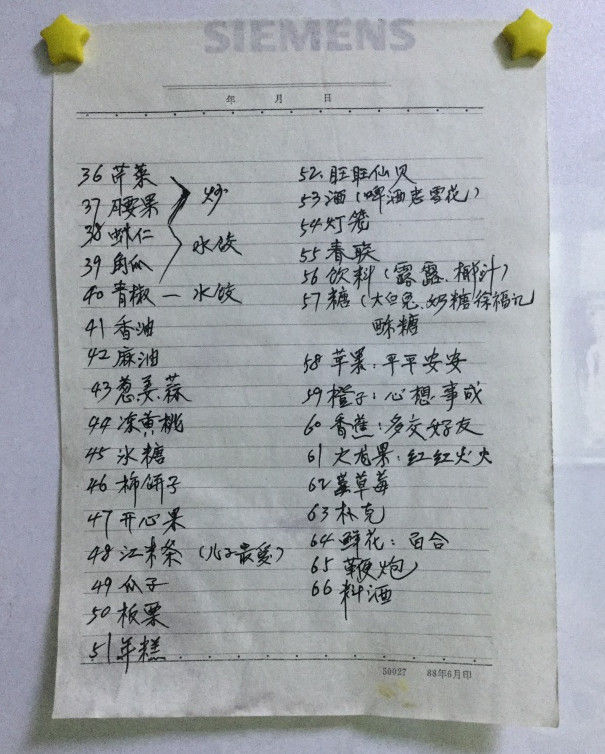 SIEMENS
年 月 日
36 芹菜
37 腰果
炒
38 虾仁
水饺
39 角瓜
40 青椒 — 水饺
41 香油
42 麻油
43 葱姜蒜
44 冻黄桃
45 冰糖
46 柿饼子
47 开心果
48 江米条（儿子最爱）
49 瓜子
50 板栗
51 年糕
52 旺旺仙贝
53 酒（啤酒老雪花）
54 灯笼
55 春联
56 饮料（露露、椰汁）
57 糖（大白兔、奶糖徐福记
酥糖
58 苹果：平平安安
59 橙子：心想事成
60 香蕉：多交好友
61 火龙果：红红火火
62 草莓
63 朴克
64 鲜花：百合
65 鞭炮
66 料酒
50027 88年6月印